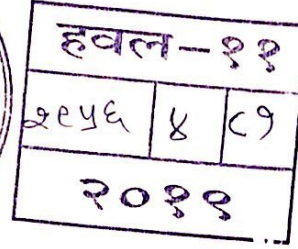 हवल-११
२९५६ ४ ८१
२०११